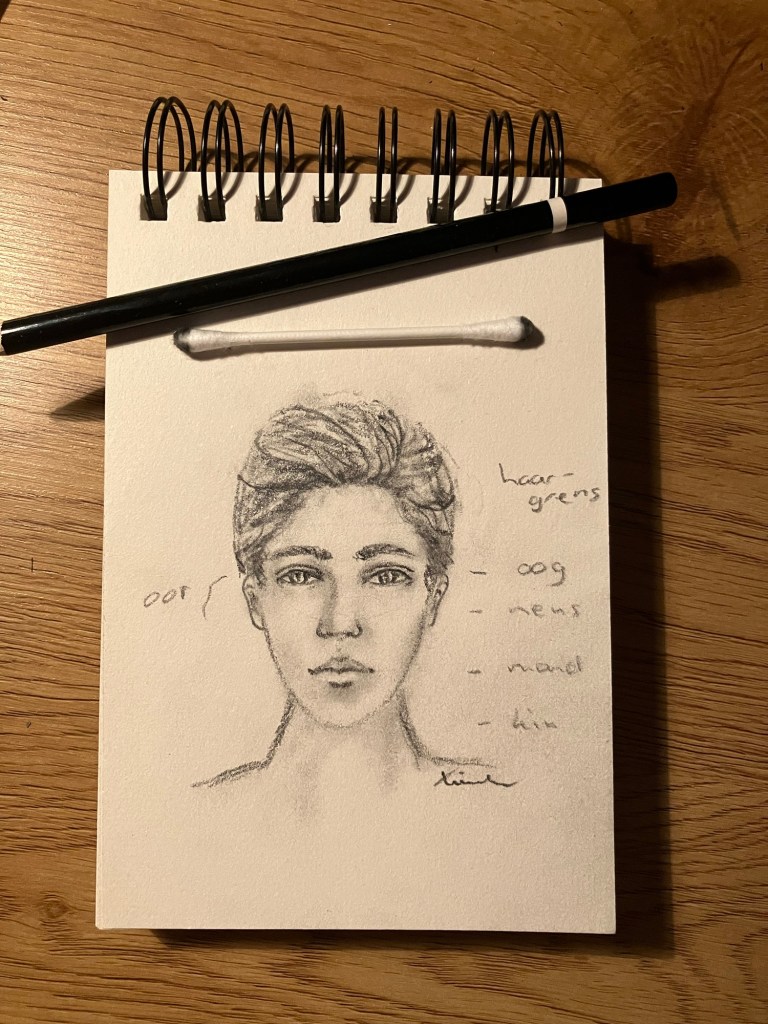 haar-
grens
oog
oor
neus
mond
kin